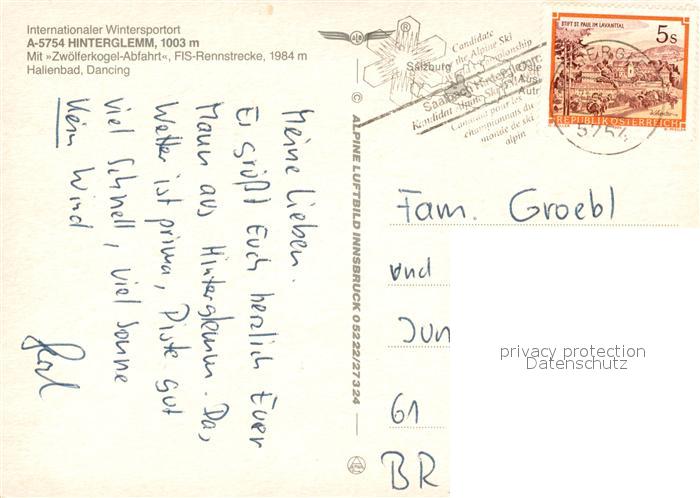 Internationaler Wintersportort
A-5754 HINTERGLEMM, 1003 m
Mit »Zwölferkogel-Abfahrt«, FIS-Rennstrecke, 1984 m
Hallenbad, Dancing
Candidate
the Alpine Ski
Championship
Salzburg
Saalbach Hinterglemm
Kandidat Alpine Ski
Candidat pour les
championnats du
monde de ski
alpin
5754
STIFT ST. PAUL IM LAVANTTAL
5s
REPUBLIK ÖSTERREICH
© ALPINE LUFTBILD INNSBRUCK 05222/27324
Meine Lieben.
Es grüßt Euch herzlich Euer
Mann aus Hinterglemm. Da,
Wetter ist prima, Piste gut
viel Schnell, viel Sonne
Kein Wind
Fam. Groebl
und
Jun
61
BR
privacy protection
Datenschutz